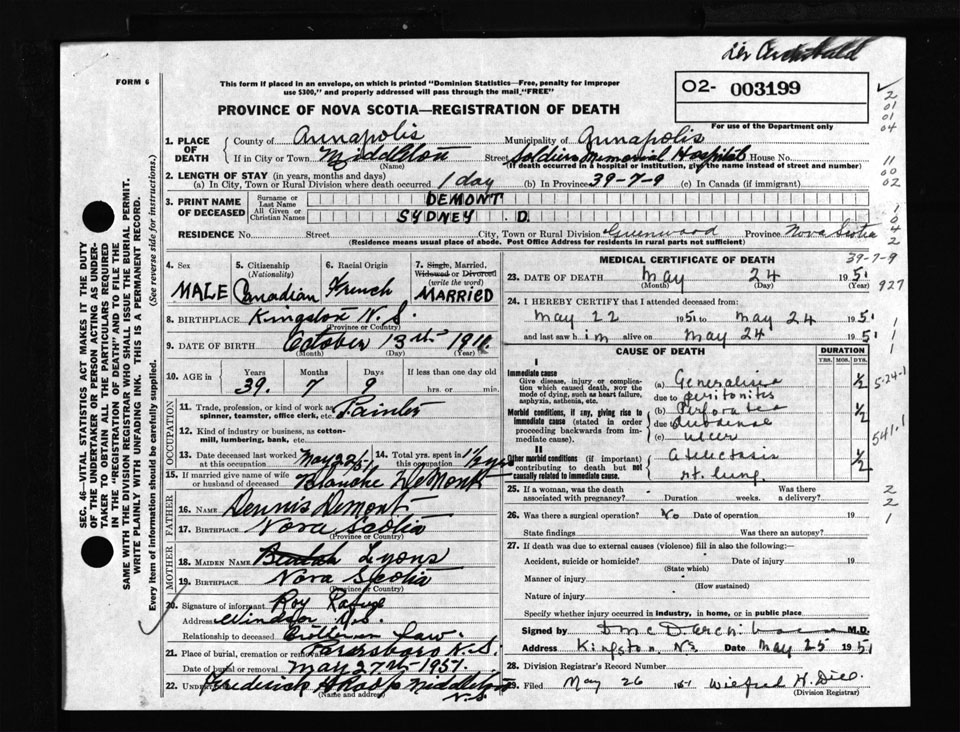 Archibald
FORM 6
This form if placed in an envelope, on which is printed "Dominion Statistics—Free, penalty for improper
use $300," and properly addressed will pass through the mail "FREE"
PROVINCE OF NOVA SCOTIA—REGISTRATION OF DEATH
O2- 003199
For use of the Department only
2
01
01
04
11
00
02
1
0
4
2
39-7-9
927
1
1
1
5-24-1
541.1
2
2
1
SEC. 46—VITAL STATISTICS ACT MAKES IT THE DUTY
OF THE UNDERTAKER OR PERSON ACTING AS UNDER-
TAKER TO OBTAIN ALL THE PARTICULARS REQUIRED
IN THE "REGISTRATION OF DEATH" AND TO FILE THE
SAME WITH THE DIVISION REGISTRAR WHO SHALL ISSUE THE BURIAL PERMIT.
WRITE PLAINLY WITH UNFADING INK. THIS IS A PERMANENT RECORD.
Every item of information should be carefully supplied. (See reverse side for instructions.)
1. PLACE OF DEATH County of Annapolis Municipality of Annapolis
If in City or Town Middleton Street Soldiers Memorial Hospital House No.
(Name) (If death occurred in a hospital or institution, give the name instead of street and number)
2. LENGTH OF STAY (in years, months and days)
(a) In City, Town or Rural Division where death occurred 1 day (b) In Province 39-7-9 (c) In Canada (if immigrant)
3. PRINT NAME OF DECEASED Surname or Last Name DEMONT
All Given or Christian Names SYDNEY D.
RESIDENCE No. Street City, Town or Rural Division Greenwood Province Nova Scotia
(Residence means usual place of abode. Post Office Address for residents in rural parts not sufficient)
4. Sex MALE
5. Citizenship (Nationality) Canadian
6. Racial Origin French
7. Single, Married, Widowed or Divorced (write the word) MARRIED
8. BIRTHPLACE Kingston N.S.
(Province or Country)
9. DATE OF BIRTH October 13th 1911
(Month) (Day) (Year)
10. AGE in Years Months Days If less than one day
39. 7 9 hrs. or min.
OCCUPATION
11. Trade, profession, or kind of work as spinner, teamster, office clerk, etc. Painter
12. Kind of industry or business, as cotton-mill, lumbering, bank, etc.
13. Date deceased last worked at this occupation May 22/51
14. Total yrs. spent in this occupation 1 1/2 yrs
15. If married give name of wife or husband of deceased Blanche DeMont
FATHER
16. Name Dennis Demont
17. Birthplace Nova Scotia
(Province or Country)
MOTHER
18. Maiden Name Beulah Lyons
19. Birthplace Nova Scotia
(Province or Country)
20. Signature of informant Roy Rafuse
Address Windsor N.S.
Relationship to deceased Brother in law.
21. Place of burial, cremation or removal Parrsboro N.S.
Date of burial or removal May 27th 1951.
22. UNDERTAKER Frederick Middleton
(Name and address) N.S.
MEDICAL CERTIFICATE OF DEATH
23. DATE OF DEATH May 24 1951
(Month) (Day) (Year)
24. I HEREBY CERTIFY that I attended deceased from:
May 22 1951 to May 24 1951
and last saw him alive on May 24 1951
CAUSE OF DEATH DURATION
YRS. MOS. DYS.
I
Immediate cause
Give disease, injury or complication which caused death, not the mode of dying, such as heart failure, asphyxia, asthenia, etc.
(a) Generalised 1/2
due to peritonitis
Morbid conditions, if any, giving rise to immediate cause (stated in order proceeding backwards from immediate cause).
(b) Perforated 1/2
due to duodenal
(c) ulcer
II
Other morbid conditions (if important) contributing to death but not causally related to immediate cause.
Atelectasis 1/2
rt. lung.
25. If a woman, was the death associated with pregnancy? Duration weeks. Was there a delivery?
26. Was there a surgical operation? No Date of operation 19
State findings Was there an autopsy?
27. If death was due to external causes (violence) fill in also the following:—
Accident, suicide or homicide? Date of injury 19
(State which)
Manner of injury
(How sustained)
Nature of injury
Specify whether injury occurred in industry, in home, or in public place
Signed by M.D.
Address Kingston, N.S. Date May 25 1951
28. Division Registrar's Record Number
29. Filed May 26 1951 Wilfred H. Dill
(Division Registrar)